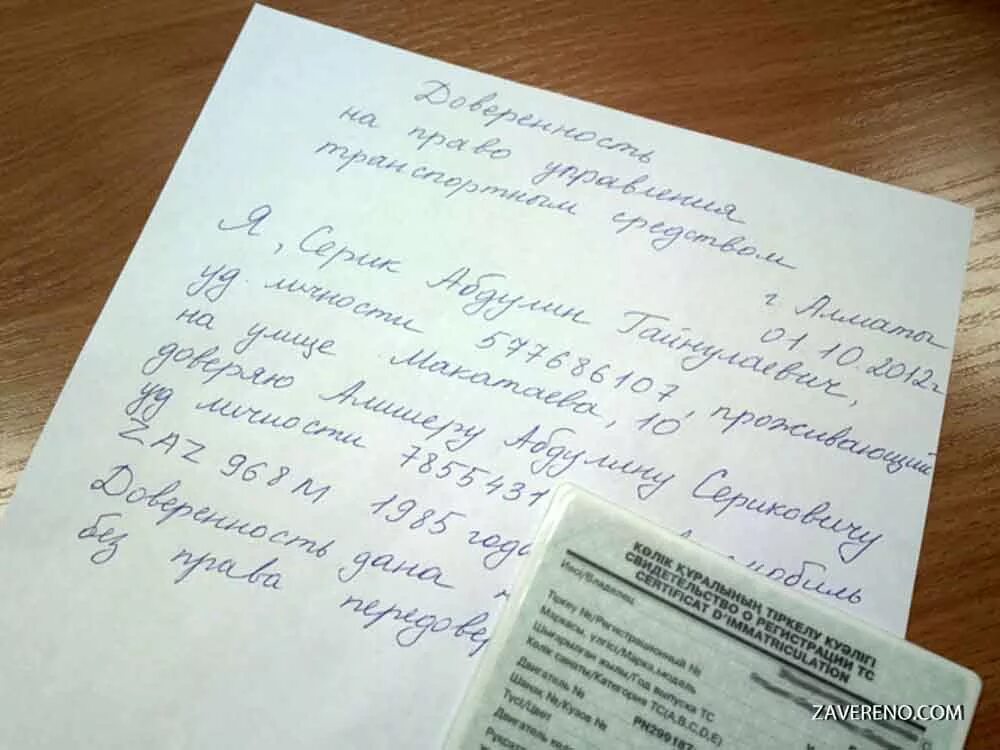 Доверенность
на право управления
транспортным средством
г. Алматы
01.10.2012г
Я, Серик Абдулин Гайнулаевич,
уд. личности 577686107, проживающий
на улице Макатаева, 10
доверяю Алишеру Абдулину Сериковичу
уд личности 7855431
ZAZ 968М 1985 года
Доверенность дана
без права передове
КӨЛІК ҚҰРАЛЫНЫҢ ТІРКЕЛУ КУӘЛІГІ
СВИДЕТЕЛЬСТВО О РЕГИСТРАЦИИ ТС
CERTIFICAT D'IMMATRICULATION
Иесі/Владелец
Тіркеу №/Регистрационный №
Маркасы, үлгісі/Марка, модель
Шығарылған жылы/Год выпуска ТС
Көлік санаты/Категория ТС(A,B,C,D,E)
Двигатель №
Шанақ №/Кузов № PN299187
Түсі/Цвет
Двигатель
ZAVERENO.COM